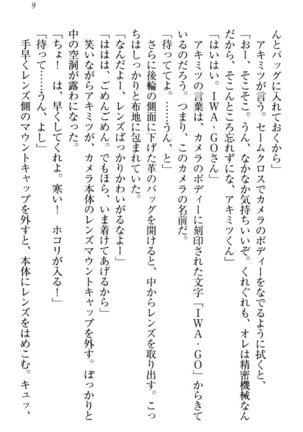 9
んとバッグに入れておくから」
アキミツが言う。セームクロスでカメラのボディーをなでるように拭くと、
「おー、そこそこ。うん、なかなか気持ちいいぞ。くれぐれも、オレは精密機械なん
だから、そこんところ忘れずにな、アキミツくん」
「はいはい。IWA・GOさん」
アキミツの言葉は、カメラのボディーに刻印された文字「IWA・GO」からきて
いるのだろう。つまり、このカメラの名前だ。
「待っててよ。……うん、と」
さらに後輪の側面に下げた革のバッグを開けると、中からレンズを取り出す。こっ
ちはしっかりと布地に包まれていた。
「なんだよー、レンズばっかりかわいがるなよー」
「ははは、ごめんごめん。でもほら、いま着けてあげるから」
笑いながらアキミツが、カメラ本体のレンズマウントキャップを外す。ぽっかりと
中の空洞が露わになった。
「ちょ！　は、早くしてくれよ。寒い！　ホコリが入る！」
「待って……うん、よし」
手早くレンズ側のマウントキャップを外すと、本体にレンズをはめこむ。キュッ、